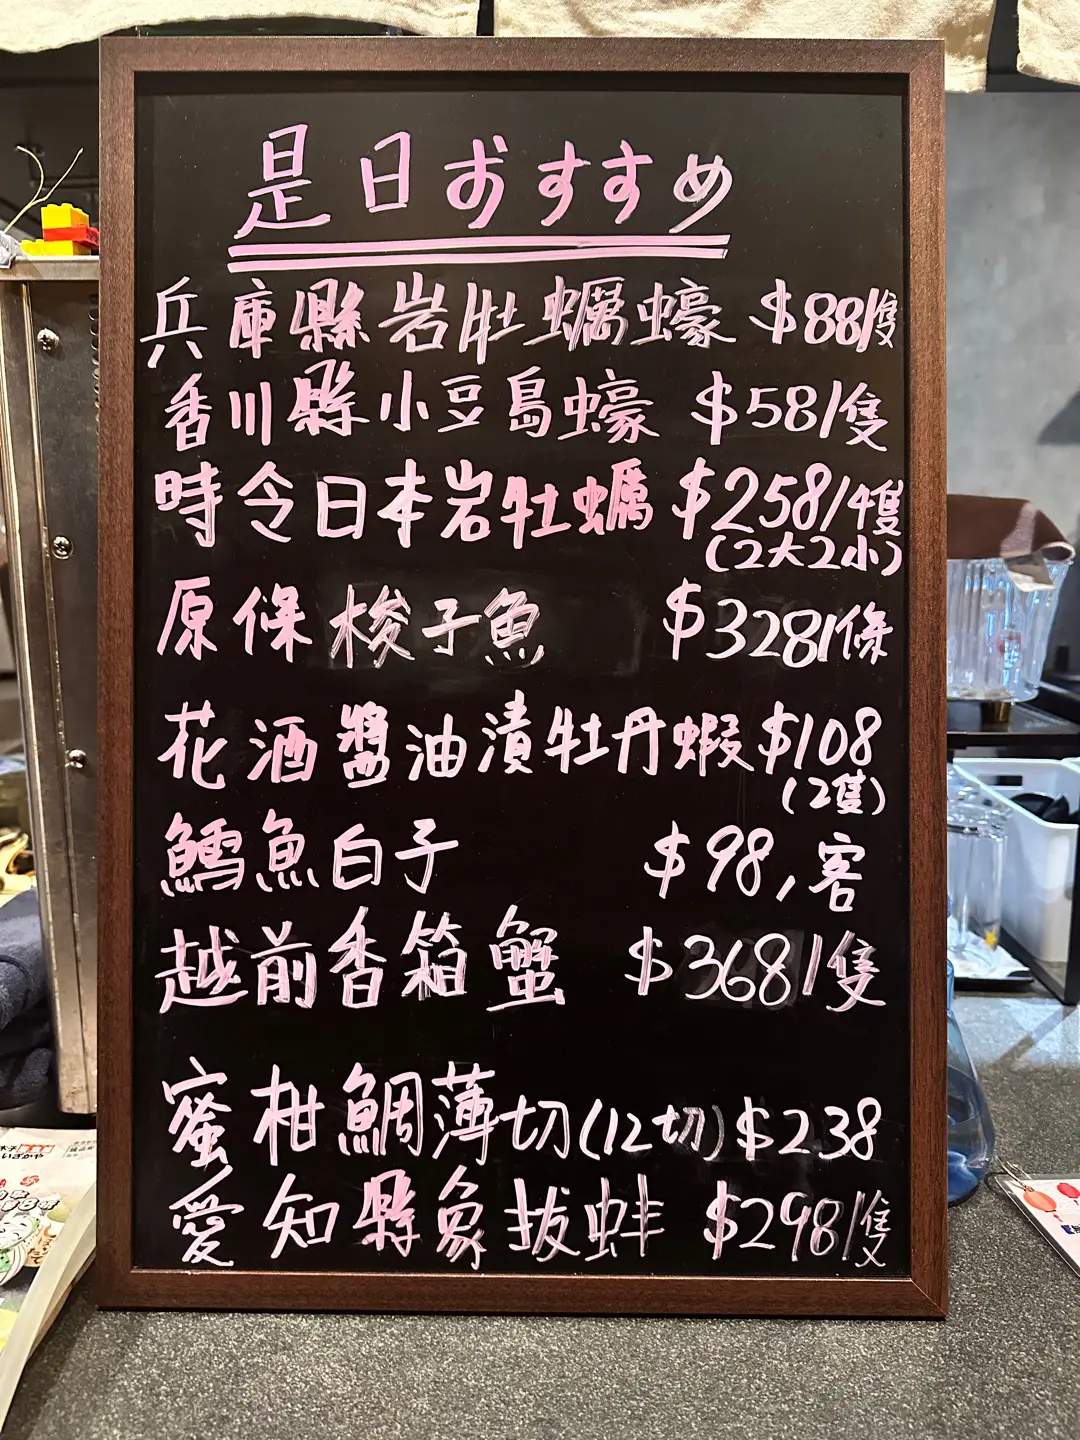 是日おすすめ
兵庫縣岩牡蠣蠔 $88/隻
香川縣小豆島蠔 $58/隻
時令日本岩牡蠣 $258/4隻
(2大2小)
原條梭子魚 $328/條
花酒醬油漬牡丹蝦 $108
(2隻)
鱈魚白子 $98,客
越前香箱蟹 $368/隻
蜜柑鯛薄切(12切) $238
愛知縣象拔蚌 $298/隻
いざかや